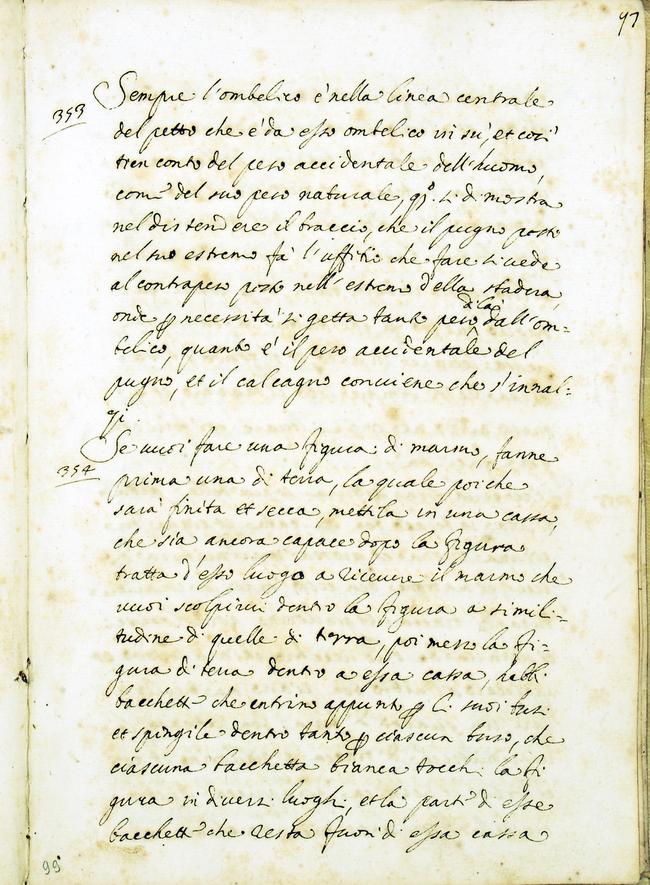 97
353
Sempre l'ombelico è nella linea centrale
del petto che è da esso ombelico in sù, et così
tien conto del peso accidentale dell'huomo,
com.e del suo peso naturale, q.o si dimostra
nel distendere il braccio, che il pugno posto
nel suo estremo fà l'uffitio che fare si vede
al contrapeso posto nell'estremo della stadera,
onde ꝑ necessità si getta tanto peso di là dall'om=
belico, quanto è il peso accidentale del
pugno, et il calcagno conviene che s'innal=
zi.
354
Se vuoi fare una figura di marmo, fanne
prima una di terra, la quale poi che
sarà finita et secca, mettila in una cassa,
che sia ancora capace dopo la figura
tratta d'esso luogo a ricevere il marmo che
vuoi scolpirvi dentro la figura a simili=
tudine di quelle di terra, poi messo la fi=
gura di terra dentro a essa cassa, habbi
bacchett.e che entrino appunto ꝑ li suoi busi
et spingile dentro tanto ꝑ ciascun buso, che
ciascuna bacchetta bianca tocchi la fi
gura in diversi luoghi, et la parte di esse
bacchett.e che resta fuori di essa cassa
99